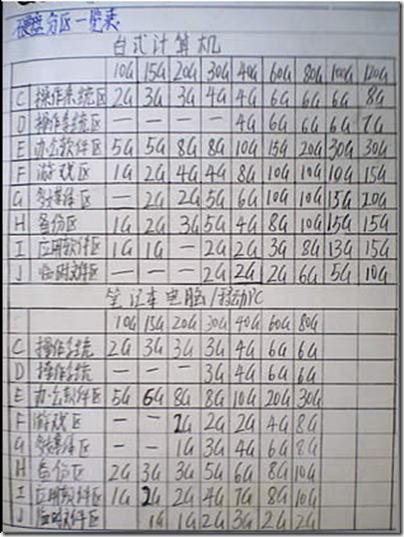 硬盘分区一览表
台式计算机
10G 15G 20G 30G 40G 60G 80G 100G 120G
C 操作系统区 2G 3G 3G 4G 4G 6G 6G 6G 8G
D 操作系统区 — — — — 4G 6G 6G 6G 7G
E 办公软件区 5G 5G 8G 8G 10G 15G 20G 30G 30G
F 游戏区 1G 2G 4G 4G 8G 10G 10G 10G 15G
G 多媒体区 — 2G 2G 5G 6G 10G 10G 15G 20G
H 备份区 1G 2G 3G 5G 4G 8G 10G 15G 15G
I 应用软件区 1G 1G — 2G 2G 3G 8G 13G 15G
J 临时文件区 — — — 2G 2G 2G 6G 5G 10G
笔记本电脑/移动PC
10G 15G 20G 30G 40G 60G 80G
C 操作系统 2G 3G 3G 3G 4G 6G 6G
D 操作系统 — — — 3G 4G 6G 6G
E 办公软件区 5G 6G 8G 8G 10G 20G 30G
F 游戏区 — — 2G 2G 2G 4G 8G
G 多媒体区 — — 1G 3G 4G 6G 8G
H 备份区 2G 3G 3G 5G 6G 8G 10G
I 应用软件区 1G 2G 2G 4G 7G 8G 10G
J 临时文件区 1G 1G 2G 3G 2G 2G